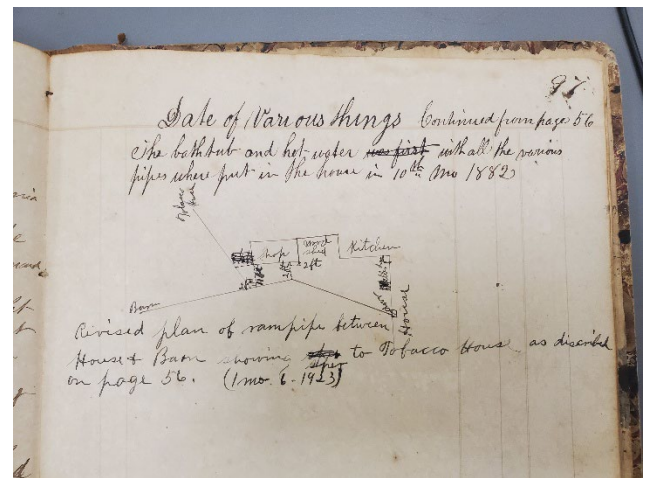 97
Date of Various things Continued from page 56
The bathtub and hot water was first with all the various
pipes where put in the house in 10th Mo 1882
Shop
Wood shed
Kitchen
2ft
2ft
2ft
Barn
House
Revised plan of rampipe between
House & Barn showing to Tobacco House, as discribed
on page 56. (1 mo. 6 - 1923)